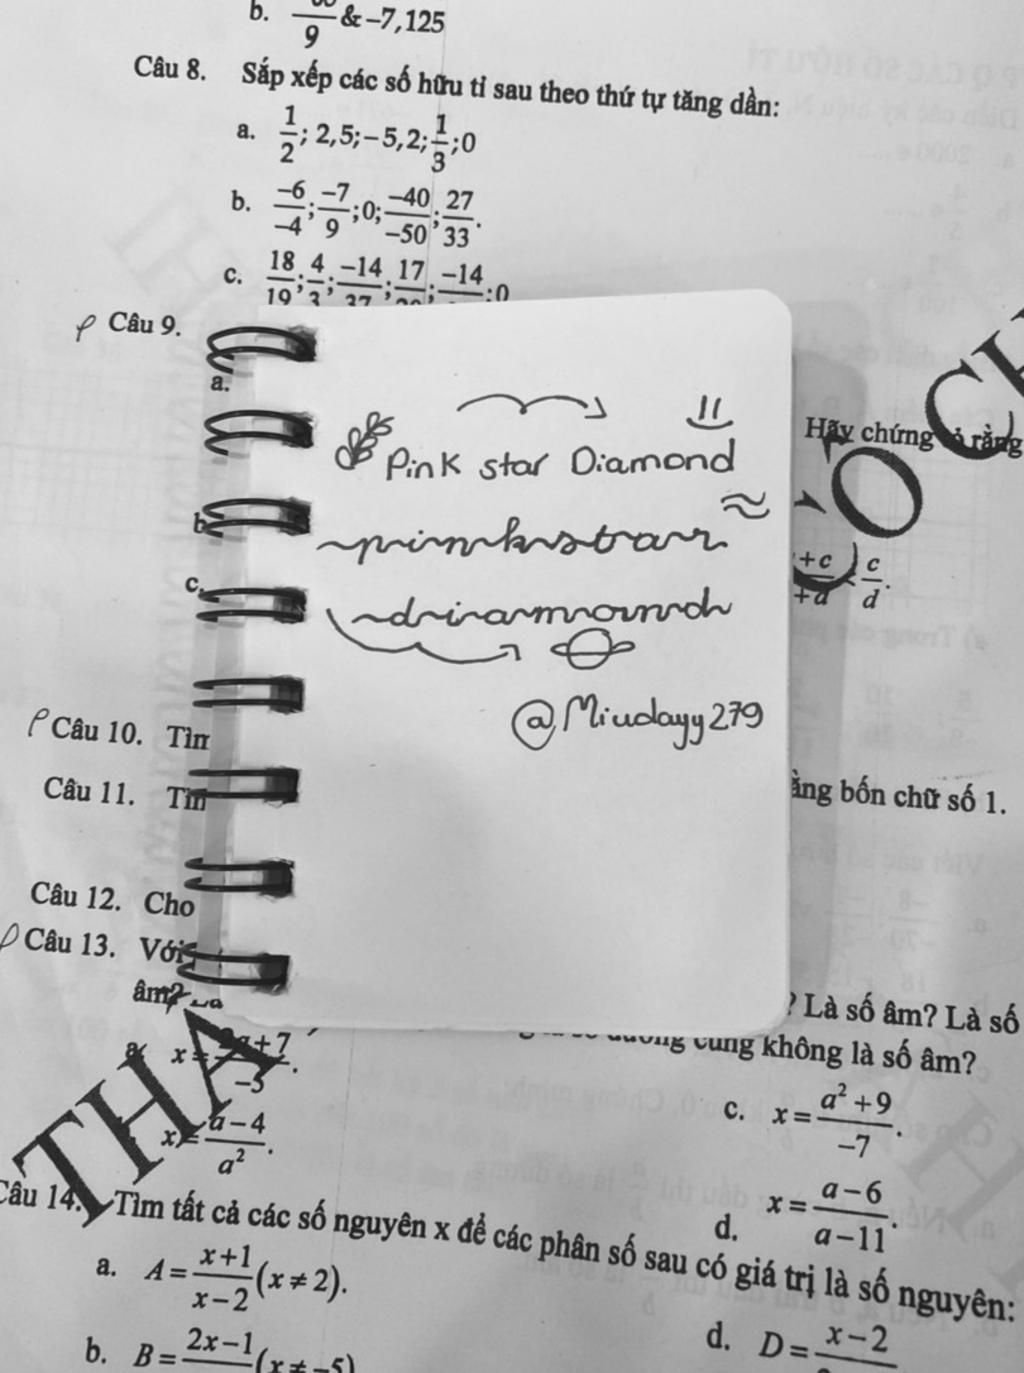 b. 9 & -7,125
Câu 8. Sắp xếp các số hữu tỉ sau theo thứ tự tăng dần:
a. 1/2; 2,5; -5,2; 1/3; 0
b. -6/-4; -7/9; 0; -40/-50; 27/33.
c. 18/19; 4/3; -14/37; 17; -14; 0
Câu 9.
a.
Hãy chứng tỏ rằng
Pink star Diamond
b
pinkstar
+c/+d < c/d.
c.
diamond
@Miudayy279
Câu 10. Tìm
Câu 11. Tìm
ằng bốn chữ số 1.
Câu 12. Cho
Câu 13. Với
? Là số âm? Là số
âm?
dương cũng không là số âm?
a. x = +7/-5.
c. x = a²+9/-7.
x = a-4/a².
d. x = a-6/a-11.
Câu 14. Tìm tất cả các số nguyên x để các phân số sau có giá trị là số nguyên:
a. A = x+1/x-2 (x ≠ 2).
d. D = x-2
b. B = 2x-1 (x ≠ -5)
THA
O CH